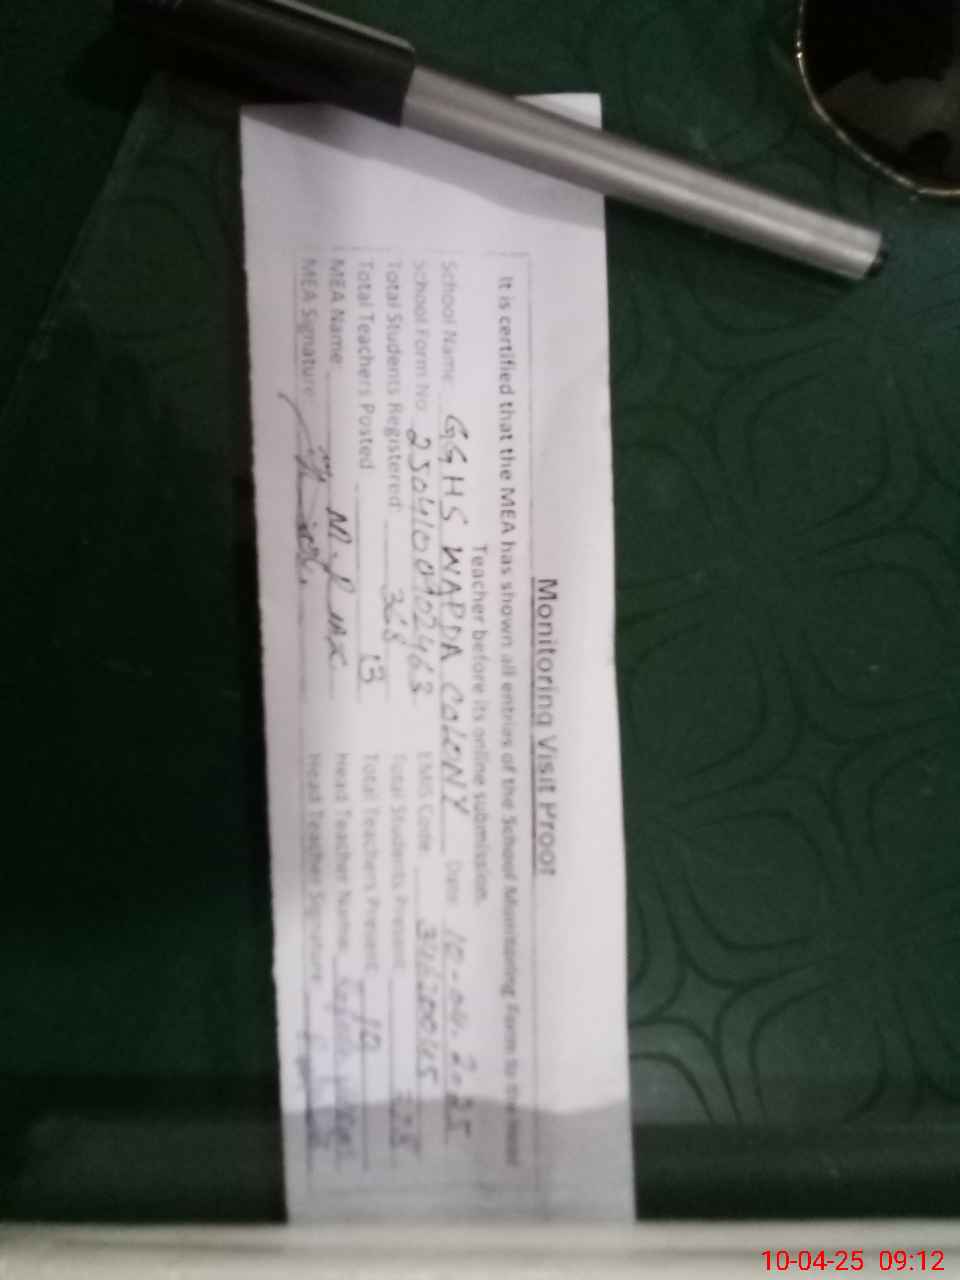 Monitoring Visit Proof
It is certified that the MEA has shown all entries of the School Monitoring Form to the Head
Teacher before its online submission.
School Name: GGHS WAPDA COLONY Date 10-04-2025
School Form No 2504100902463 EMIS Code:
Total Students Registered: 368 Total Students Present:
Total Teachers Posted 13 Total Teachers Present: 10
MEA Name: Head Teacher Name
MEA Signature Head Teacher Signature
10-04-25 09:12